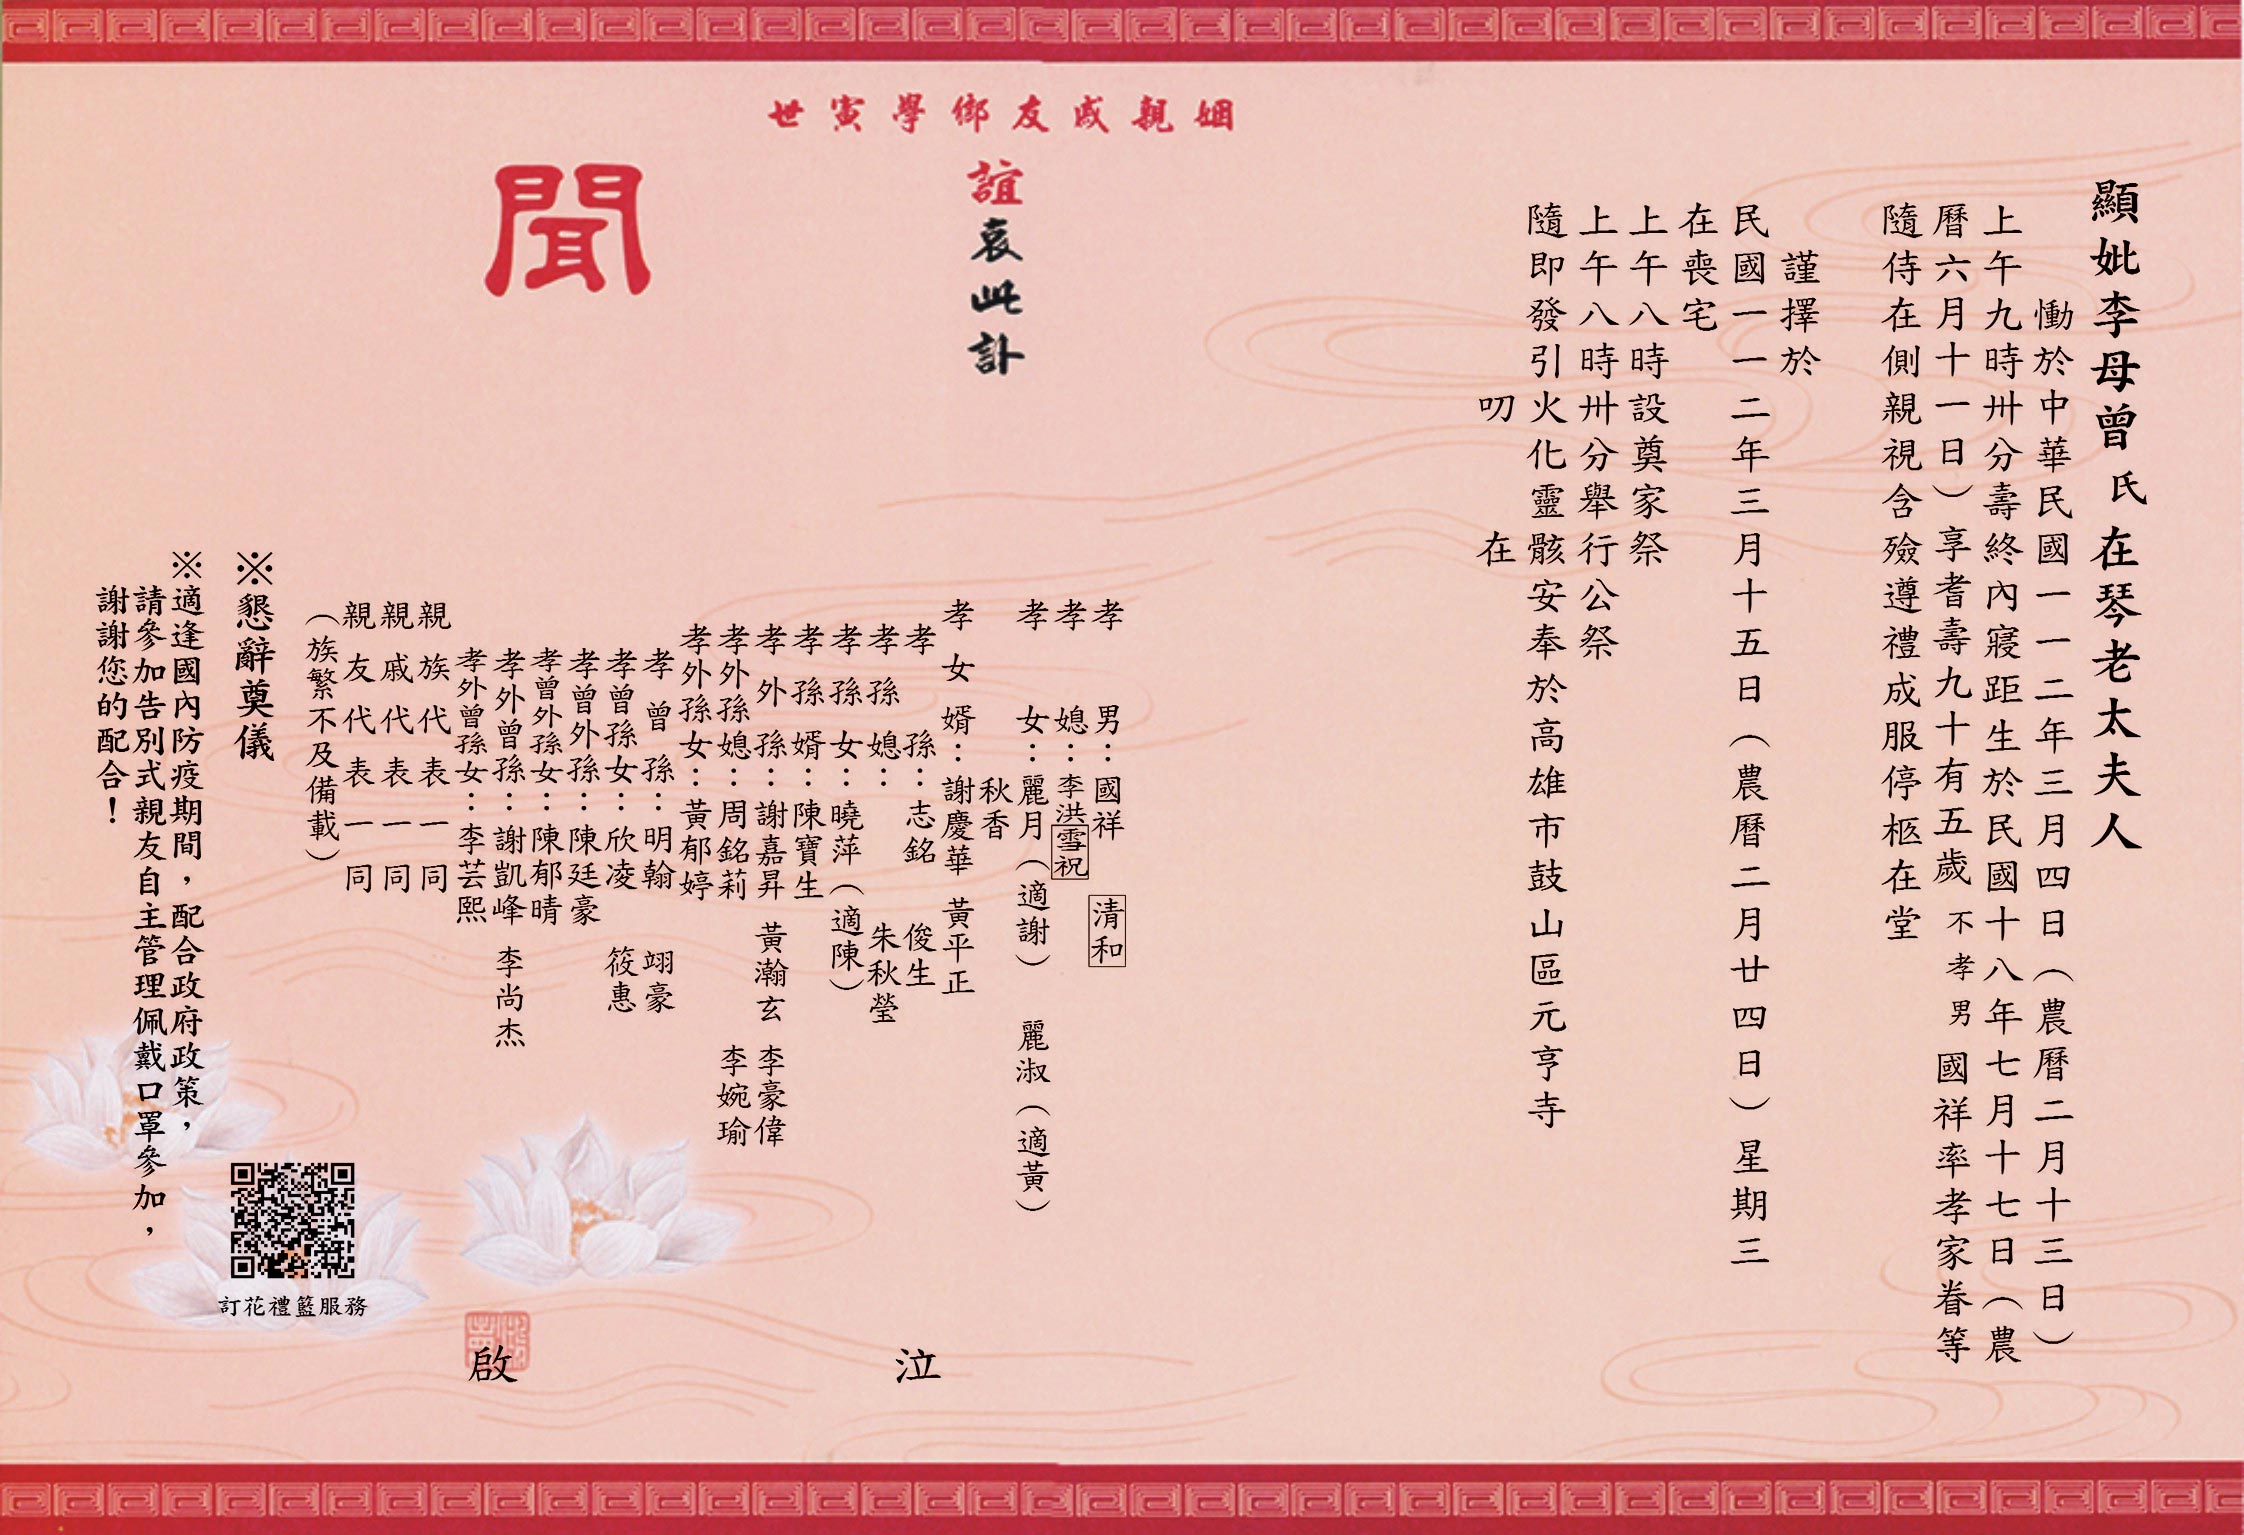 顯妣李母曾氏在琴老太夫人
慟於中華民國一一二年三月四日（農曆二月十三日）
上午九時卅分壽終內寢距生於民國十八年七月十七日（農
曆六月十一日）享耆壽九十有五歲不孝男國祥率孝家眷等
隨侍在側親視含殮遵禮成服停柩在堂
謹擇於
民國一一二年三月十五日（農曆二月廿四日）星期三
在喪宅
上午八時設奠家祭
上午八時卅分舉行公祭
隨即發引火化靈骸安奉於高雄市鼓山區元亨寺
叨 在
姻親戚友鄉學寅世
誼哀此訃
聞
孝男：國祥 清和
孝媳：李洪雪祝
孝女：麗月（適謝） 麗淑（適黃）
秋香
孝女婿：謝慶華 黃平正
孝孫：志銘 俊生
孝孫媳： 朱秋瑩
孝孫女：曉萍（適陳）
孝孫婿：陳寶生
孝外孫：謝嘉昇 黃瀚玄 李豪偉
孝外孫媳：周銘莉 李婉瑜
孝外孫女：黃郁婷
孝曾孫：明翰 翊豪
孝曾孫女：欣凌 筱惠
孝曾外孫：陳廷豪
孝曾外孫女：陳郁晴
孝外曾孫：謝凱峰 李尚杰
孝外曾孫女：李芸熙
親族代表一同
親戚代表一同
親友代表一同
（族繁不及備載）
泣 啟
※懇辭奠儀
※適逢國內防疫期間，配合政府政策，
請參加告別式親友自主管理佩戴口罩參加，
謝謝您的配合！
訂花禮籃服務